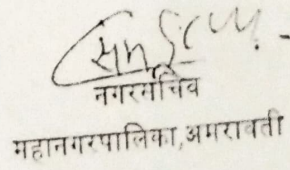 नगरसचिव
महानगरपालिका,अमरावती